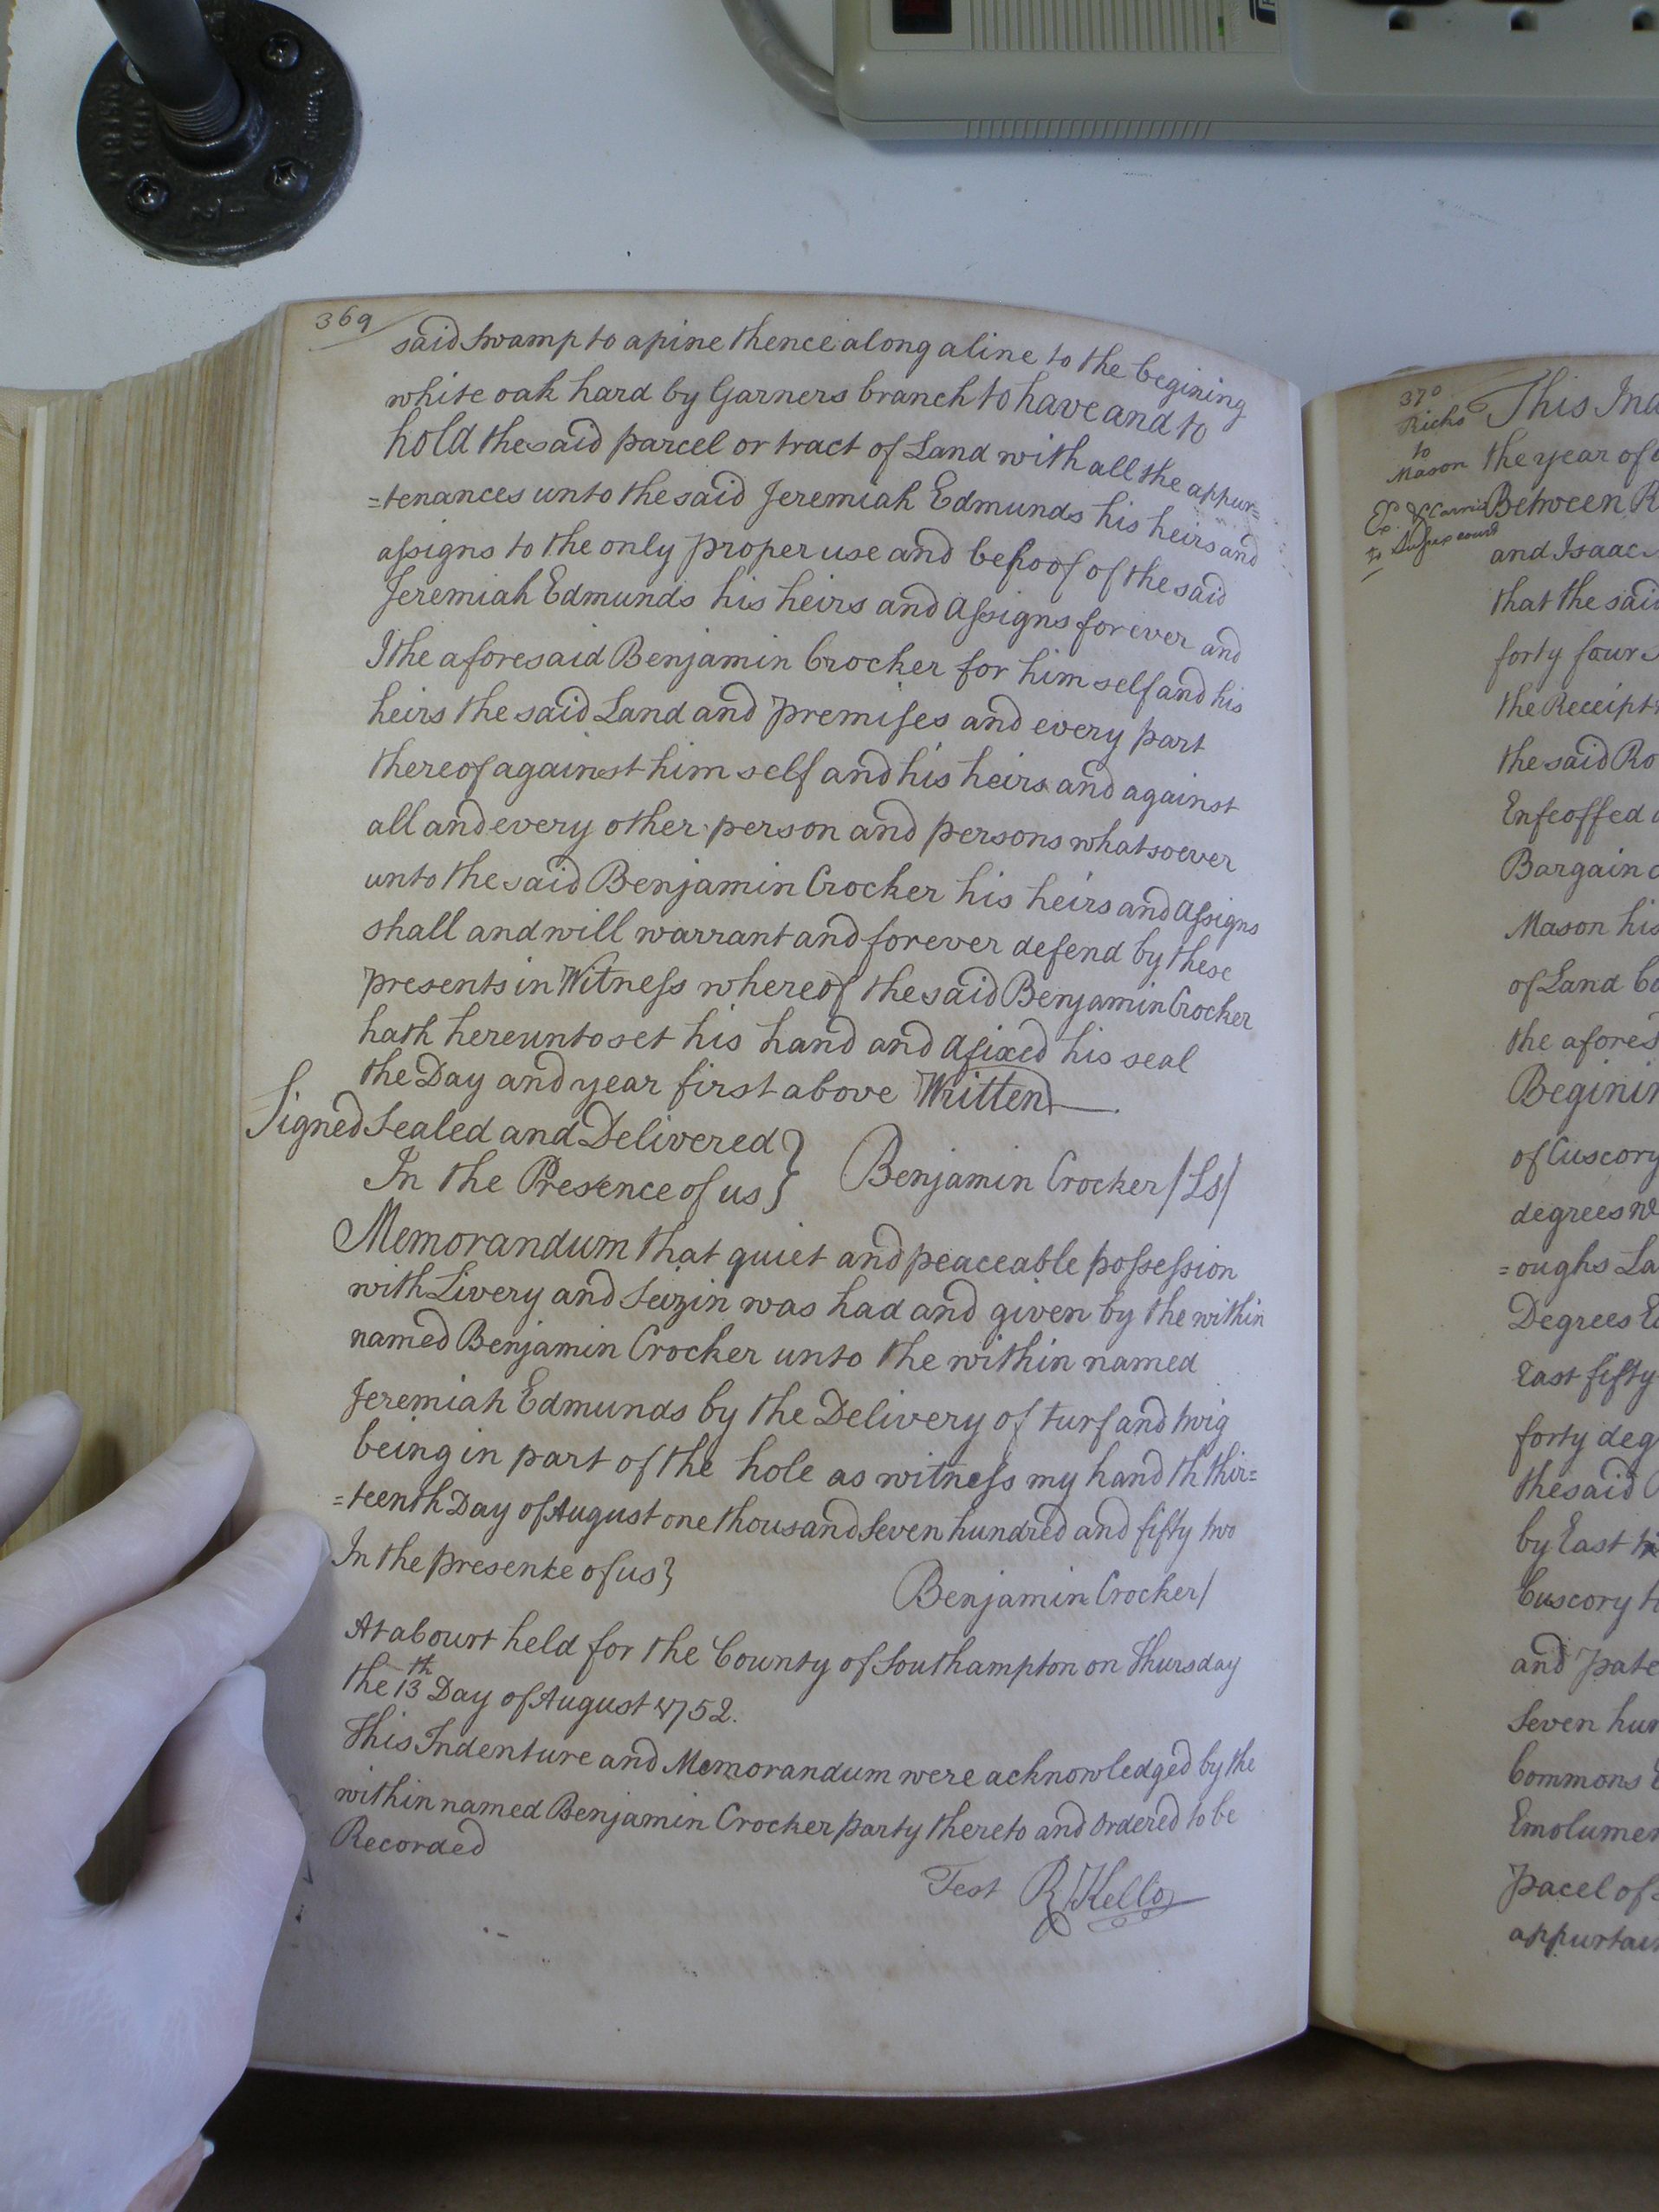 369
said Swamp to a pine thence along a line to the begining
white oak hard by Garners branch to have and to
hold the said parcel or tract of Land with all the appur=
=tenances unto the said Jeremiah Edmunds his heirs and
assigns to the only proper use and behoof of the said
Jeremiah Edmunds his heirs and Assigns forever and
I the aforesaid Benjamin Crocker for him self and his
heirs the said Land and premises and every part
thereof against him self and his heirs and against
all and every other person and persons whatsoever
unto the said Benjamin Crocker his heirs and Assigns
shall and will warrant and forever defend by these
presents in Witness whereof the said Benjamin Crocker
hath hereunto set his hand and afixed his seal
the Day and year first above Written
Signed Sealed and Delivered }
In the Presence of us }
Benjamin Crocker /LS/
Memorandum that quiet and peaceable possession
with Livery and Seizin was had and given by the within
named Benjamin Crocker unto the within named
Jeremiah Edmunds by the Delivery of turf and twig
being in part of the hole as witness my hand th thir=
=teenth Day of August one thousand Seven hundred and fifty two
In the presence of us }
Benjamin Crocker/
At a Court held for the County of Southampton on Thursday
the 13th Day of August 1752.
This Indenture and Memorandum were acknowledged by the
within named Benjamin Crocker party thereto and Ordered to be
Recorded
Test R Kello
370
Ricks
to
Mason
Ex.
to Sussex court
This Ind
the year of
Between R
and Isaac
that the said
forty four
the Receipt
the said Ro
Enfeoffed
Bargain
Mason his
of Land
the afores
Beginin
of Cuscory
degrees
=oughs La
Degrees
East fifty
forty deg
the said
by East
Cuscory
and pate
Seven hun
Commons
Emolumen
pacel of
appurtain